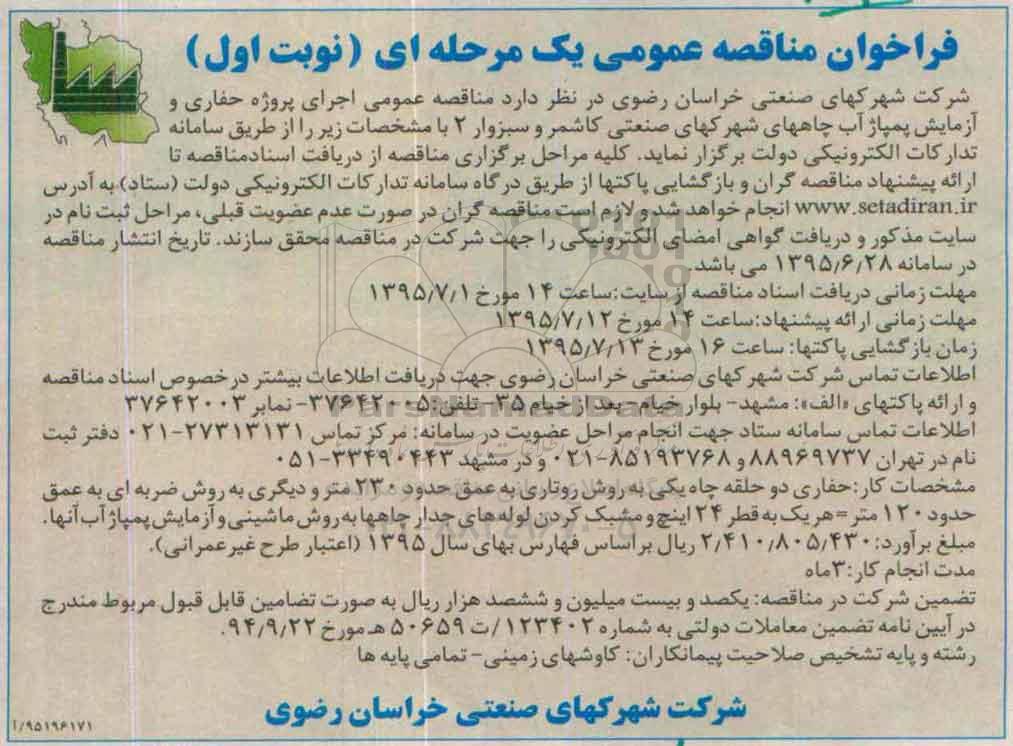 فراخوان مناقصه عمومی یک مرحله ای (نوبت اول)
شرکت شهرکهای صنعتی خراسان رضوی در نظر دارد مناقصه عمومی اجرای پروژه حفاری و
آزمایش پمپاژ آب چاههای شهرکهای صنعتی کاشمر و سبزوار ۲ با مشخصات زیر را از طریق سامانه
تدارکات الکترونیکی دولت برگزار نماید. کلیه مراحل برگزاری مناقصه از دریافت اسنادمناقصه تا
ارائه پیشنهاد مناقصه گران و بازگشایی پاکتها از طریق درگاه سامانه تدارکات الکترونیکی دولت (ستاد) به آدرس
www.setadiran.ir انجام خواهد شد و لازم است مناقصه گران در صورت عدم عضویت قبلی، مراحل ثبت نام در
سایت مذکور و دریافت گواهی امضای الکترونیکی را جهت شرکت در مناقصه محقق سازند. تاریخ انتشار مناقصه
در سامانه ۱۳۹۵/۶/۲۸ می باشد.
مهلت زمانی دریافت اسناد مناقصه از سایت: ساعت ۱۴ مورخ ۱۳۹۵/۷/۱
مهلت زمانی ارائه پیشنهاد: ساعت ۱۴ مورخ ۱۳۹۵/۷/۱۲
زمان بازگشایی پاکتها: ساعت ۱۶ مورخ ۱۳۹۵/۷/۱۳
اطلاعات تماس شرکت شهرکهای صنعتی خراسان رضوی جهت دریافت اطلاعات بیشتر در خصوص اسناد مناقصه
و ارائه پاکتهای «الف»: مشهد- بلوار خیام- بعد از خیام ۳۵- تلفن: ۳۷۶۴۲۰۰۵- نمابر ۳۷۶۴۲۰۰۳
اطلاعات تماس سامانه ستاد جهت انجام مراحل عضویت در سامانه: مرکز تماس ۲۷۳۱۳۱۳۱-۰۲۱ دفتر ثبت
نام در تهران ۸۸۹۶۹۷۳۷ و ۸۵۱۹۳۷۶۸-۰۲۱ و در مشهد ۳۳۴۹۰۴۴۳-۰۵۱
مشخصات کار: حفاری دو حلقه چاه یکی به روش روتاری به عمق حدود ۲۳۰ متر و دیگری به روش ضربه ای به عمق
حدود ۱۲۰ متر = هر یک به قطر ۲۴ اینچ و مشبک کردن لوله های جدار چاهها به روش ماشینی و آزمایش پمپاژ آب آنها.
مبلغ برآورد: ۲/۴۱۰/۸۰۵/۴۳۰ ریال بر اساس فهارس بهای سال ۱۳۹۵ (اعتبار طرح غیرعمرانی).
مدت انجام کار: ۳ماه
تضمین شرکت در مناقصه: یکصد و بیست میلیون و ششصد هزار ریال به صورت تضامین قابل قبول مربوط مندرج
در آیین نامه تضمین معاملات دولتی به شماره ۱۲۳۴۰۲/ت ۵۰۶۵۹ هـ مورخ ۹۴/۹/۲۲.
رشته و پایه تشخیص صلاحیت پیمانکاران: کاوشهای زمینی- تمامی پایه ها
شرکت شهرکهای صنعتی خراسان رضوی
۹۵۱۹۶۱۷۱/آ